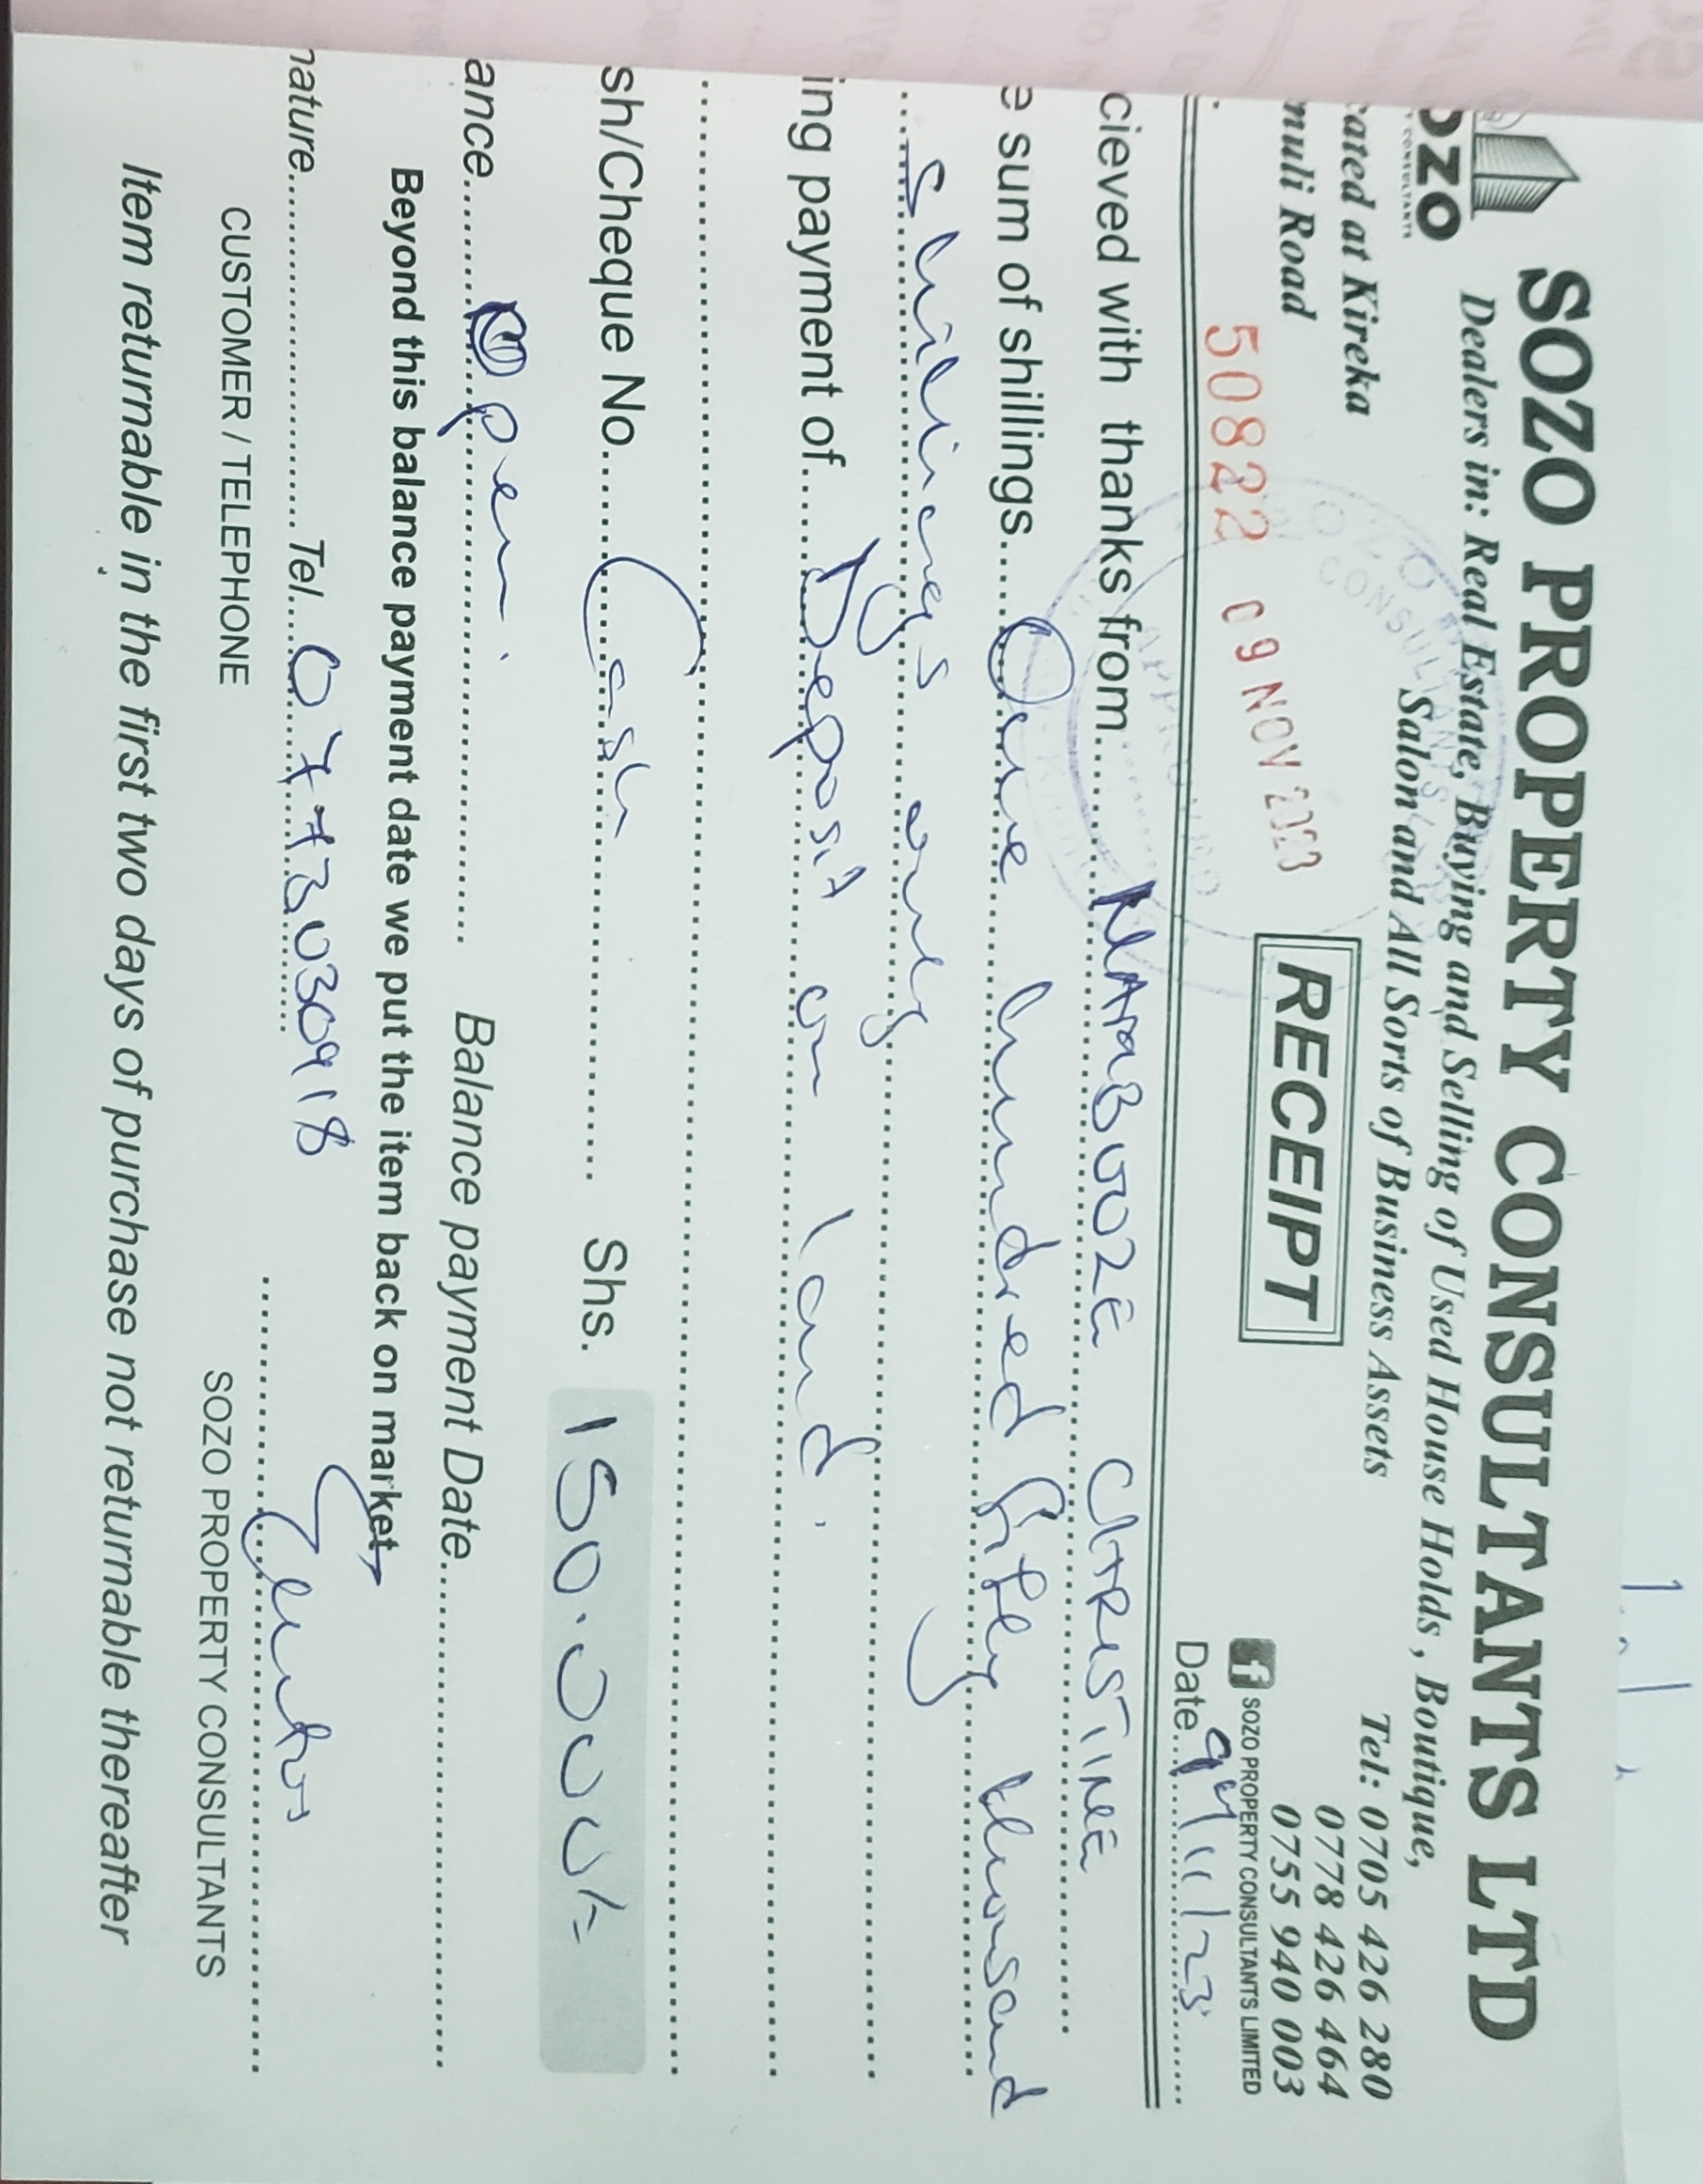 SOZO PROPERTY CONSULTANTS LTD
Dealers in: Real Estate, Buying and Selling of Used House Holds , Boutique,
Salon and All Sorts of Business Assets
OZO
Y CONSULTANTS
cated at Kireka
muli Road
Tel: 0705 426 280
0778 426 464
0755 940 003
SOZO PROPERTY CONSULTANTS LIMITED
RECEIPT
50822
09 NOV 2023
SOZO
CONSULTANTS LTD
APPROVED
Date 9th/11/23
cieved with thanks from NAMBOOZE CHRISTINE
e sum of shillings One hundred fifty thousand
shillings only
ing payment of Deposit on land.
sh/Cheque No Cash Shs. 150.000/=
ance Open. Balance payment Date
Beyond this balance payment date we put the item back on market
nature Tel 0773030918
CUSTOMER / TELEPHONE
SOZO PROPERTY CONSULTANTS
Item returnable in the first two days of purchase not returnable thereafter